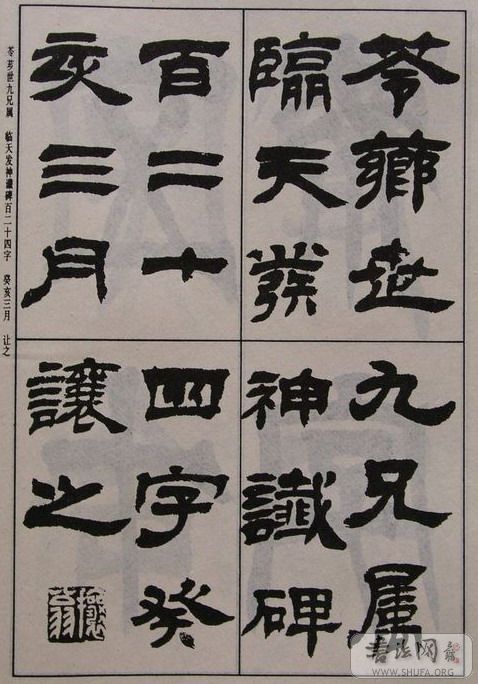 苓薌世九兄屬
臨天發神讖碑
百二十四字癸
亥三月讓之
攘翁
苓芗世九兄属 临天发神谶碑百二十四字 癸亥三月 让之
书法网
WWW.SHUFA.ORG